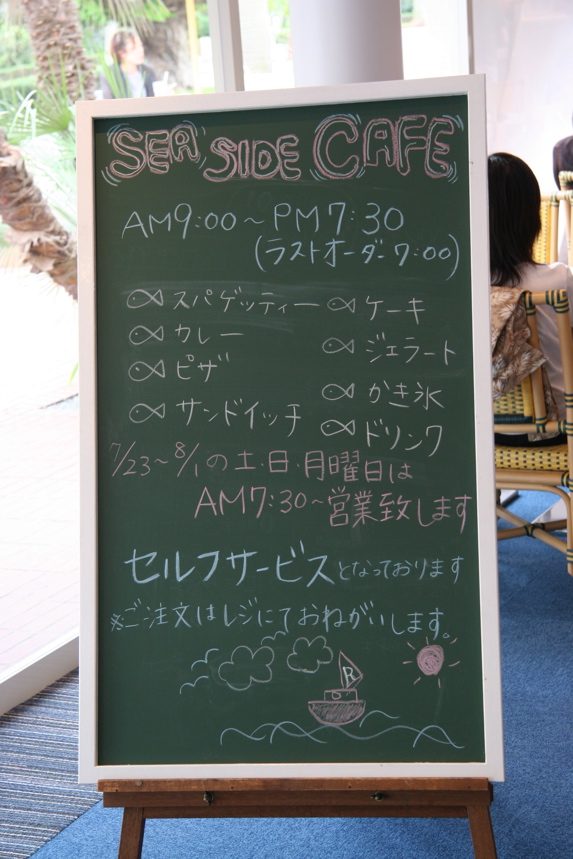 SEA SIDE CAFE
AM9:00～PM7:30
(ラストオーダー7:00)
スパゲッティー ケーキ
カレー ジェラート
ピザ かき氷
サンドイッチ ドリンク
7/23～8/1の土・日・月曜日は
AM7:30～営業致します
セルフサービスとなっております
※ご注文はレジにておねがいします。
R